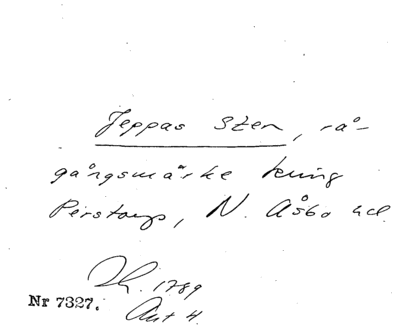 Jeppas Sten, rå-
gångsmärke kring
Perstorp, N. Åsbo hd.
Lh. 1789
Nr 7327.
Ant 4